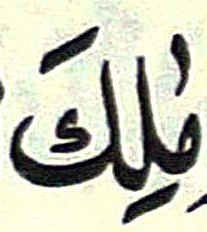 مٰلِكَ